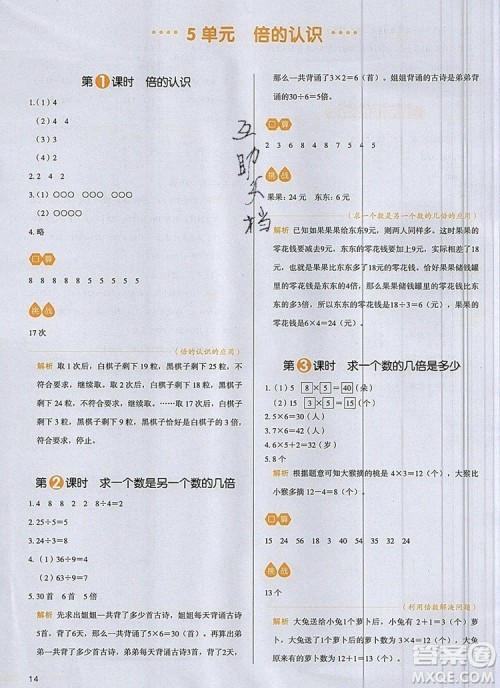 5 单元 倍的认识
第1课时 倍的认识
1.(1) 4
(2) 4
(3) 4
(4) 2
3.(1) ○○○ ○○○ ○○○
(2) ○○○ ○○○
4.略
口算
8 7 9 7 4 8 1 5
挑战
17次
(倍的认识的应用)
解析 取1次后，白棋子剩下19粒，黑棋子剩下25粒，
不符合要求，继续取。取2次后，白棋子剩下18粒，黑棋
子剩下24粒，不符合要求，继续取。取3次后，白棋子剩
下17粒，黑棋子剩下23粒，不符合要求，继续取。……
取17次后，白棋子剩下3粒，黑棋子剩下9粒，9÷3=3，
符合要求，停止。
第2课时 求一个数是另一个数的几倍
1.4 8 8 2 8÷2=4
2.25÷5=5
3.24÷3=8
4.(1) 36÷9=4
(2) 63÷9=7
5.30首 6首 5倍
解析 先求出姐姐一共背了多少首古诗，姐姐每天背古诗
5首，6天后一共背诵了5×6=30（首）。再算出弟弟一
共背了多少首古诗，弟弟每天背古诗2首，背了3天，
14
那么一共背诵了3×2=6（首）。姐姐背诵的古诗是弟弟背
诵的30÷6=5倍。
口算
2 3 6 8 4 8 5 7 1
挑战
果果：24元 东东：6元
(求一个数是另一个数的几倍的应用)
解析 已知如果果果给东东9元，则两人同样多。果果的
零花钱要减去9元，东东的零花钱要加上9元，实际相差了
18元，也就是果果的零花钱比东东的零花钱多18元。果果
的零花钱是东东的4倍，也就是果果的零花钱比东东的零
花钱多3倍。因此东东的零花钱是18÷3=6（元），果果的
零花钱是6×4=24（元）。
第3课时 求一个数的几倍是多少
1.(1) 5 8×5=40（朵）
(2) 15
2.5×6=30（人）
4.6×5+2=32（人）
5.8个
解析 根据题意可知大猴摘的桃是4×3=12（个），大猴
比小猴多摘12-4=8（个）。
口算
15 24 56 18 32 16 12 30
挑战
13个
(利用倍数解决问题)
解析 大兔送给小兔1个萝卜后，小兔现在有萝卜2+1=
3（个），大兔现在的萝卜个数就是3×4=12（个），大兔
原来有12+1=13（个）。
互助文档
答案圈
MXQE.COM